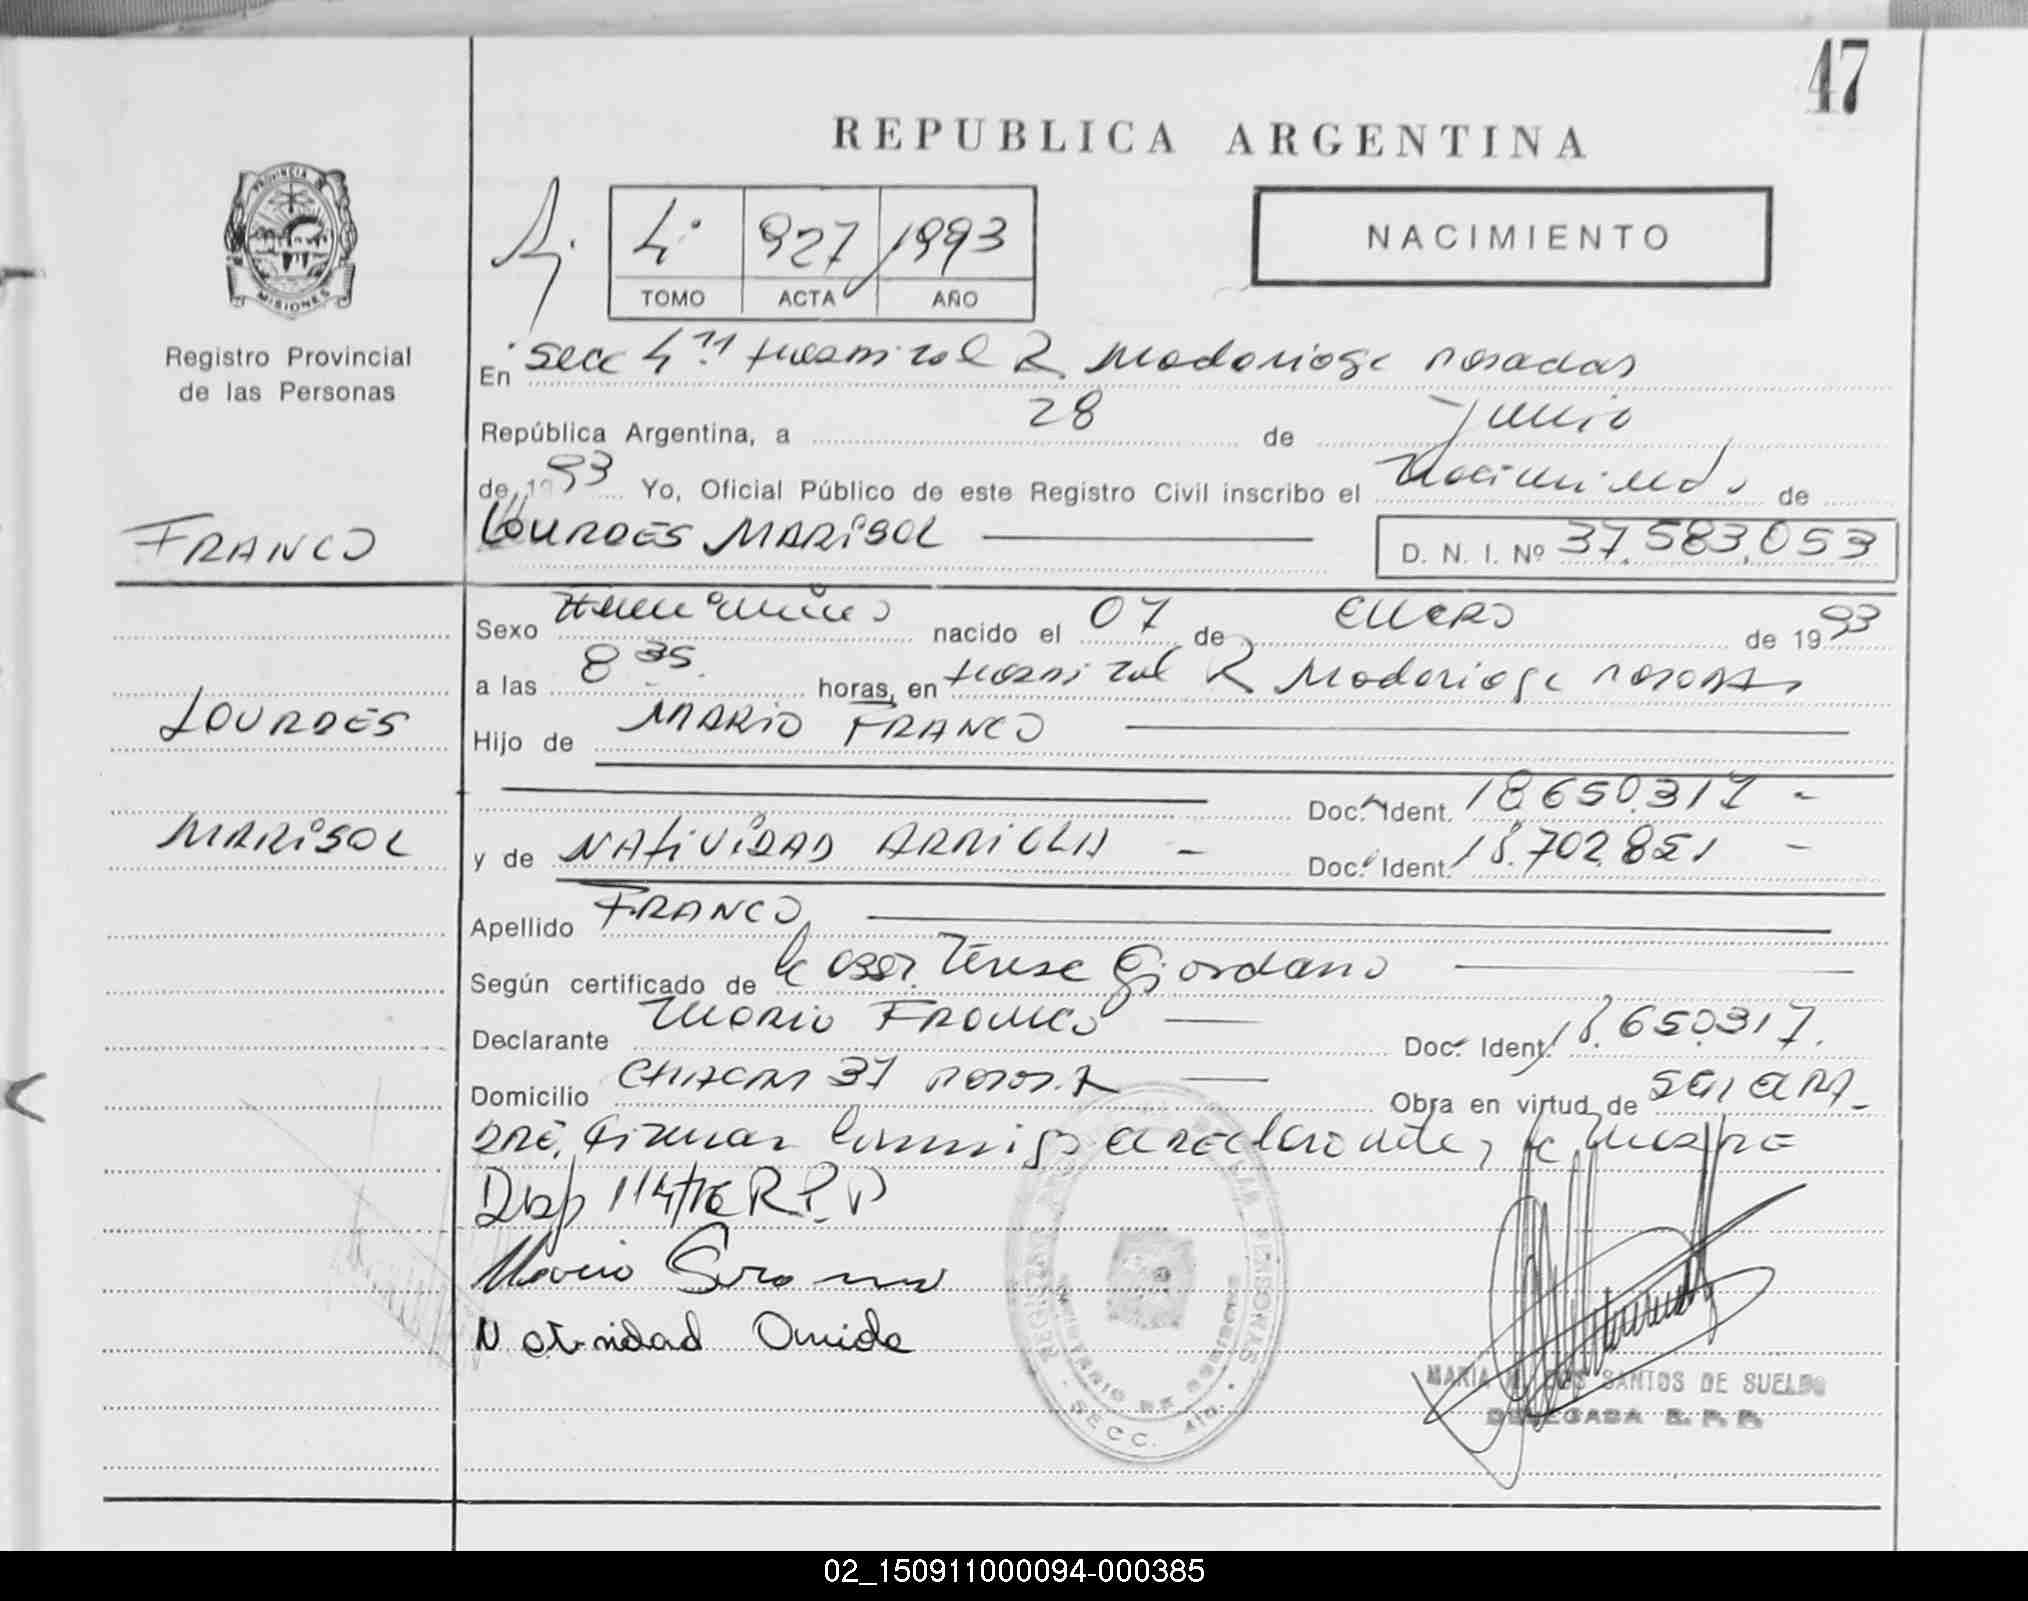 47
REPUBLICA ARGENTINA
PROVINCIA DE
MISIONES
Registro Provincial
de las Personas
4º 927 1993
TOMO ACTA AÑO
NACIMIENTO
En Secc 4ta Hospital R Madariaga Posadas
República Argentina, a 28 de Junio
de 1993 Yo, Oficial Público de este Registro Civil inscribo el Nacimiento de
FRANCO
LOURDES MARISOL
D. N. I. Nº 37.583.053
Sexo Femenino nacido el 07 de ENERO de 1993
a las 8 35 horas, en Hospital R Madariaga Posadas
LOURDES
Hijo de MARIO FRANCO
Doc. Ident. 18.650.317 -
MARISOL
y de NATIVIDAD ARRIOLA - Doc. Ident. 18.702.851 -
Apellido FRANCO
Según certificado de la obst. Teresa Giordano
Declarante Mario FRANCO Doc. Ident. 18.650.317.
Domicilio CHACRA 37 Posadas Obra en virtud de SER EL PA-
DRE, Firman conmigo el declarante, la madre
Disp 114/16 R.P.P
Mario Franco
Natividad
REGISTRO PROVINCIAL DE LAS PERSONAS
SECC. 4ta.
MARIA DOS SANTOS DE SUELDO
DELEGADA R. P. P.
02_150911000094-000385